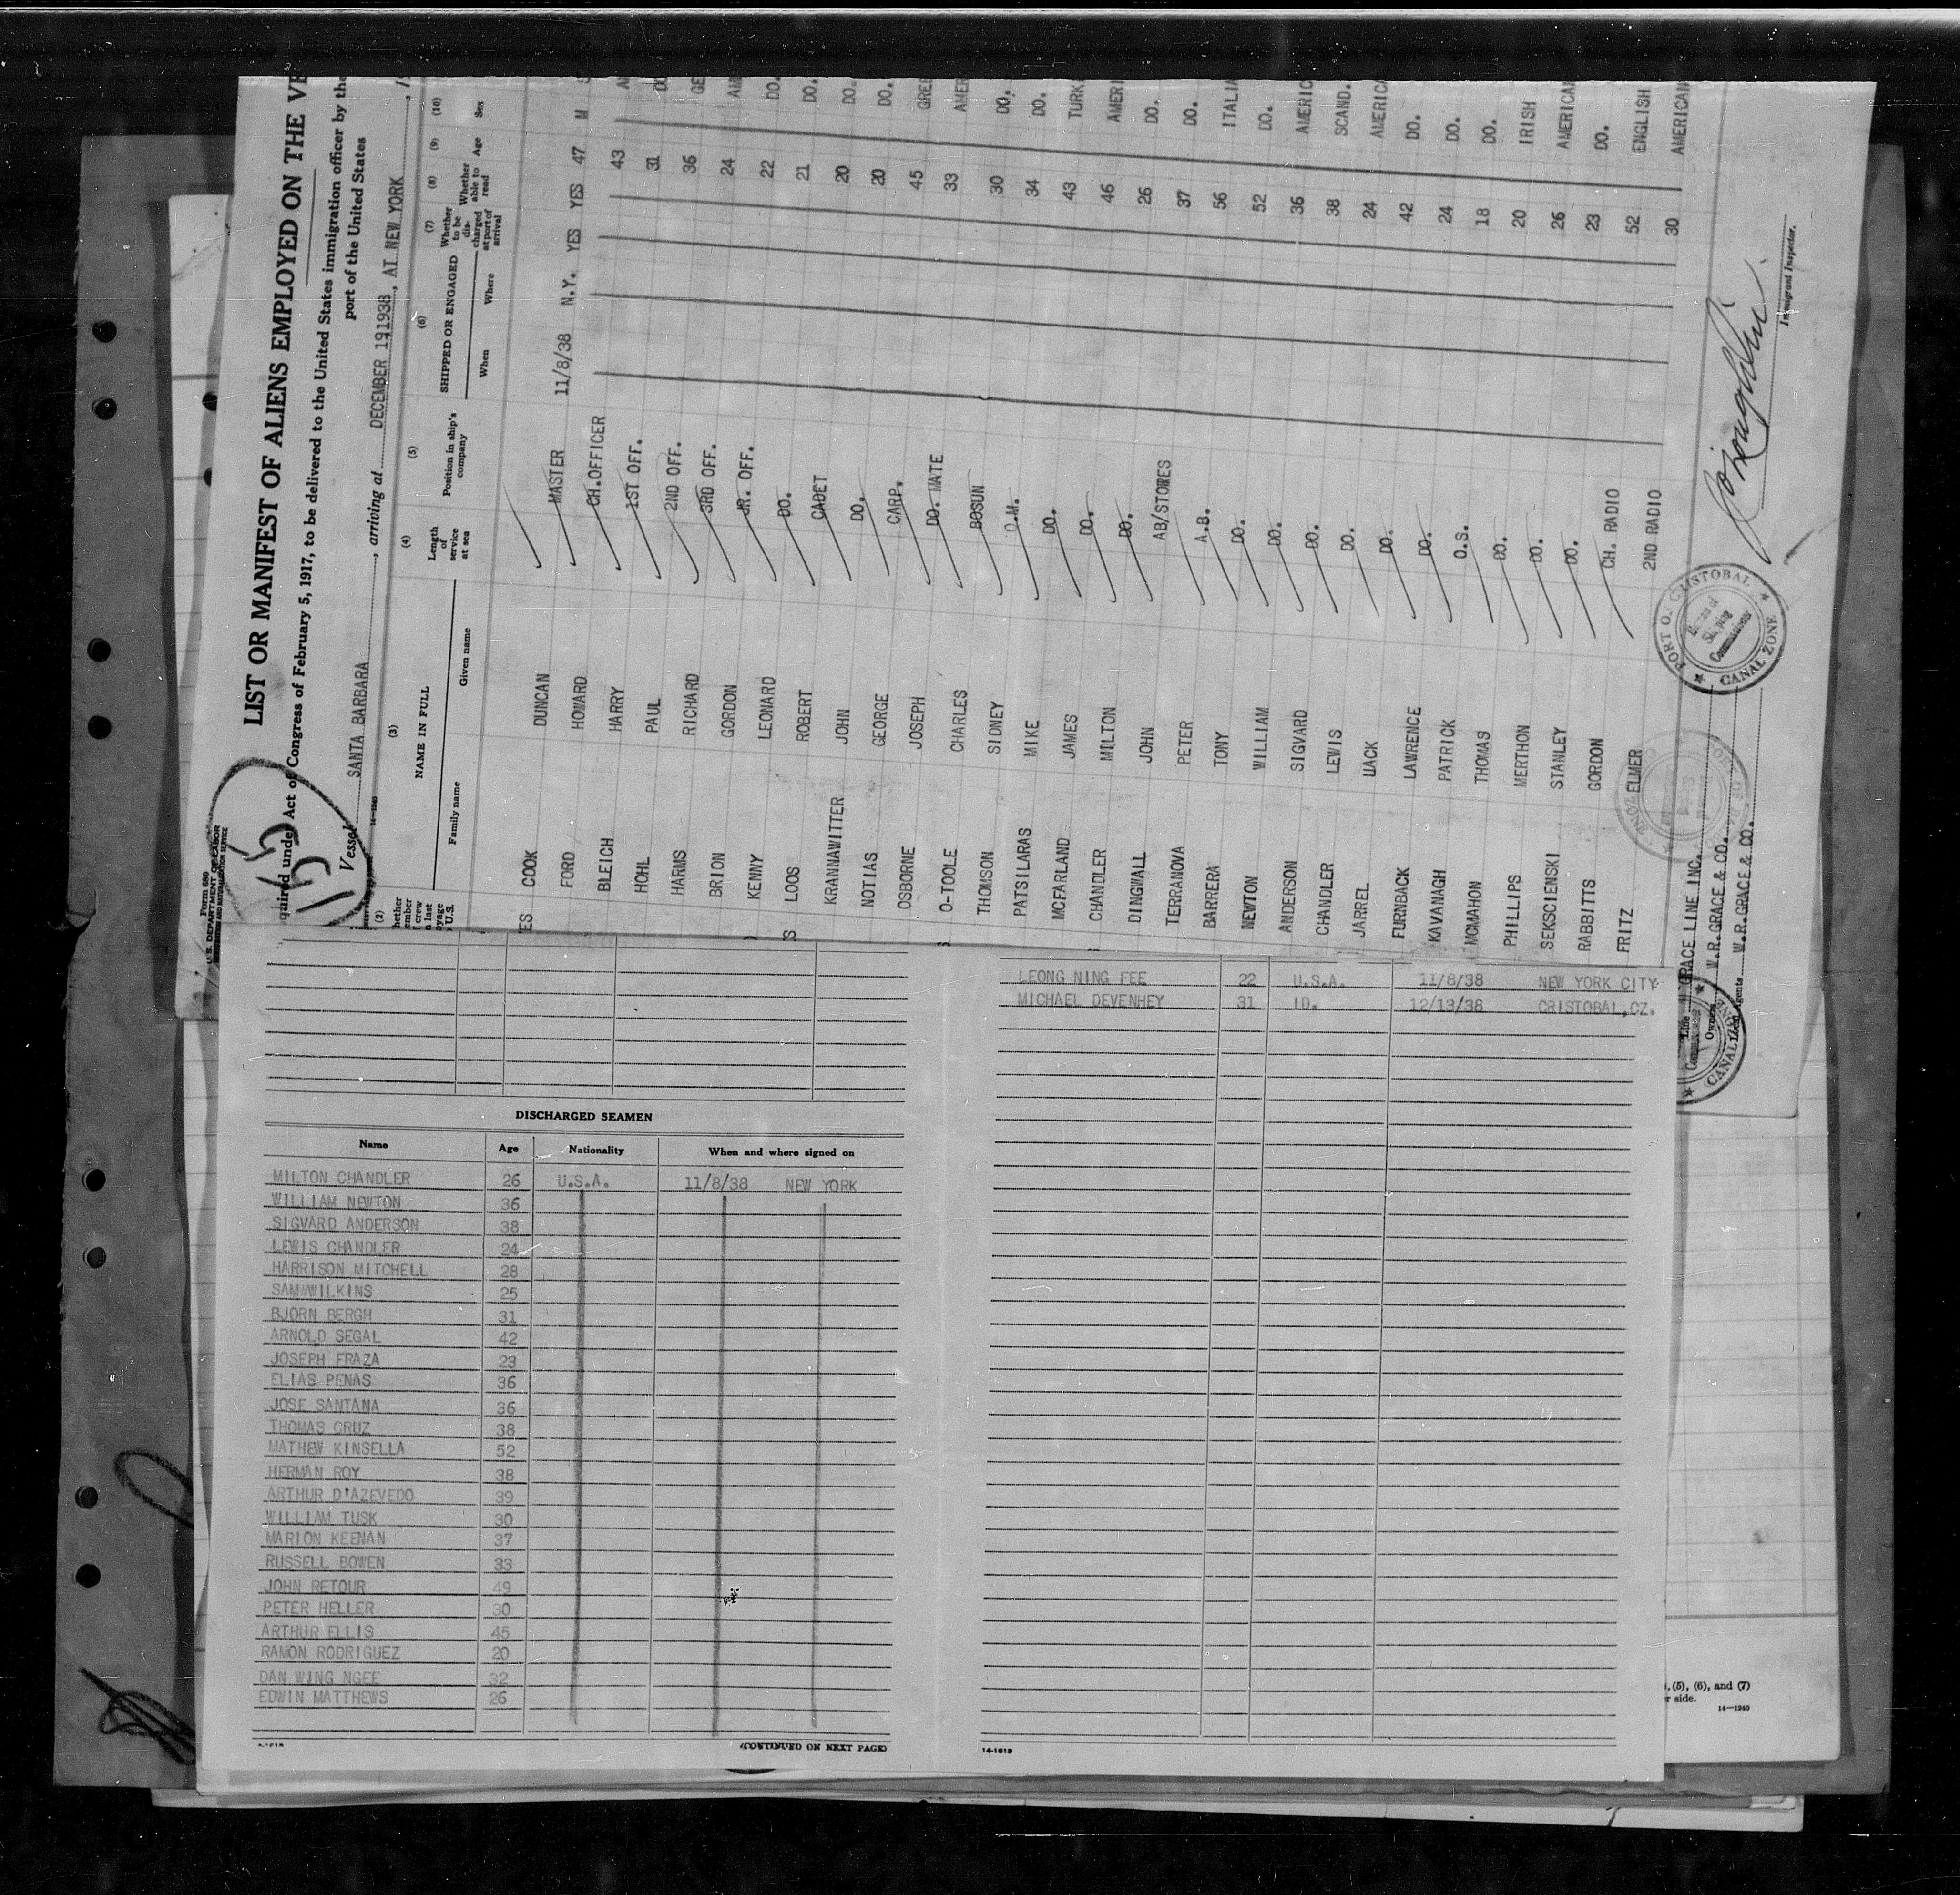 Form 680
U.S. DEPARTMENT OF LABOR
IMMIGRATION AND NATURALIZATION SERVICE
LIST OR MANIFEST OF ALIENS EMPLOYED ON THE VE
quired under Act of Congress of February 5, 1917, to be delivered to the United States immigration officer by the
port of the United States
Vessel SANTA BARBARA, arriving at DECEMBER 191938, AT NEW YORK
14-1240
(2) (3) (4) (5) (6) (7) (8) (9) (10)
NAME IN FULL
Family name Given name
Length of service at sea
Position in ship's company
SHIPPED OR ENGAGED
When Where
Whether to be discharged at port of arrival
Whether able to read
Age Sex
COOK DUNCAN MASTER 11/8/38 N.Y. YES YES 47 M S
FORD HOWARD CH.OFFICER 43 A
BLEICH HARRY 1ST OFF. 31 DO
HOHL PAUL 2ND OFF. 36 GE
HARMS RICHARD 3RD OFF. 24 AM
BRION GORDON JR. OFF. 22 DO.
KENNY LEONARD DO. 21 DO.
LOOS ROBERT CADET 20 DO.
KRANNAWITTER JOHN DO. 20 DO.
NOTIAS GEORGE CARP. 45 GREE
OSBORNE JOSEPH DO. MATE 33 AMER
O-TOOLE CHARLES BOSUN 30 DO.
THOMSON SIDNEY Q.M. 34 DO.
PATSILARAS MIKE DO. 43 TURK
MCFARLAND JAMES DO. 46 AMERI
CHANDLER MILTON DO. 26 DO.
DINGWALL JOHN AB/STORES 37 DO.
TERRANOVA PETER A.B. 56 ITALIA
BARRERA TONY DO. 52 DO.
NEWTON WILLIAM DO. 36 AMERIC
ANDERSON SIGVARD DO. 38 SCAND.
CHANDLER LEWIS DO. 24 AMERICA
JARREL JACK DO. 42 DO.
FURNBACK LAWRENCE DO. 24 DO.
KAVANAGH PATRICK O.S. 18 DO.
MCMAHON THOMAS DO. 20 IRISH
PHILLIPS MERTHON DO. 26 AMERICAN
SEKSCIENSKI STANLEY DO. 23 DO.
RABBITTS GORDON CH. RADIO 52 ENGLISH
FRITZ ELMER 2ND RADIO 30 AMERICAN
Line GRACE LINE INC.
Owners W.R.GRACE & CO.
Agents W.R.GRACE & CO.
Immigrant Inspector.
PORT OF CRISTOBAL
Shipping Commissioner
CANAL ZONE
LEONG NING FEE 22 U.S.A. 11/8/38 NEW YORK CITY
MICHAEL DEVENHEY 31 ID. 12/13/38 CRISTOBAL,CZ.
DISCHARGED SEAMEN
Name Age Nationality When and where signed on
MILTON CHANDLER 26 U.S.A. 11/8/38 NEW YORK
WILLIAM NEWTON 36
SIGVARD ANDERSON 38
LEWIS CHANDLER 24
HARRISON MITCHELL 28
SAM WILKINS 25
BJORN BERGH 31
ARNOLD SEGAL 42
JOSEPH FRAZA 23
ELIAS PENAS 36
JOSE SANTANA 36
THOMAS CRUZ 38
MATHEW KINSELLA 52
HERMAN ROY 38
ARTHUR D'AZEVEDO 39
WILLIAM TUSK 30
MARION KEENAN 37
RUSSELL BOWEN 33
JOHN RETOUR 49
PETER HELLER 30
ARTHUR ELLIS 45
RAMON RODRIGUEZ 20
DAN WING NGEE 32
EDWIN MATTHEWS 26
(CONTINUED ON NEXT PAGE)
14-1618
, (5), (6), and (7)
r side.
14-1240